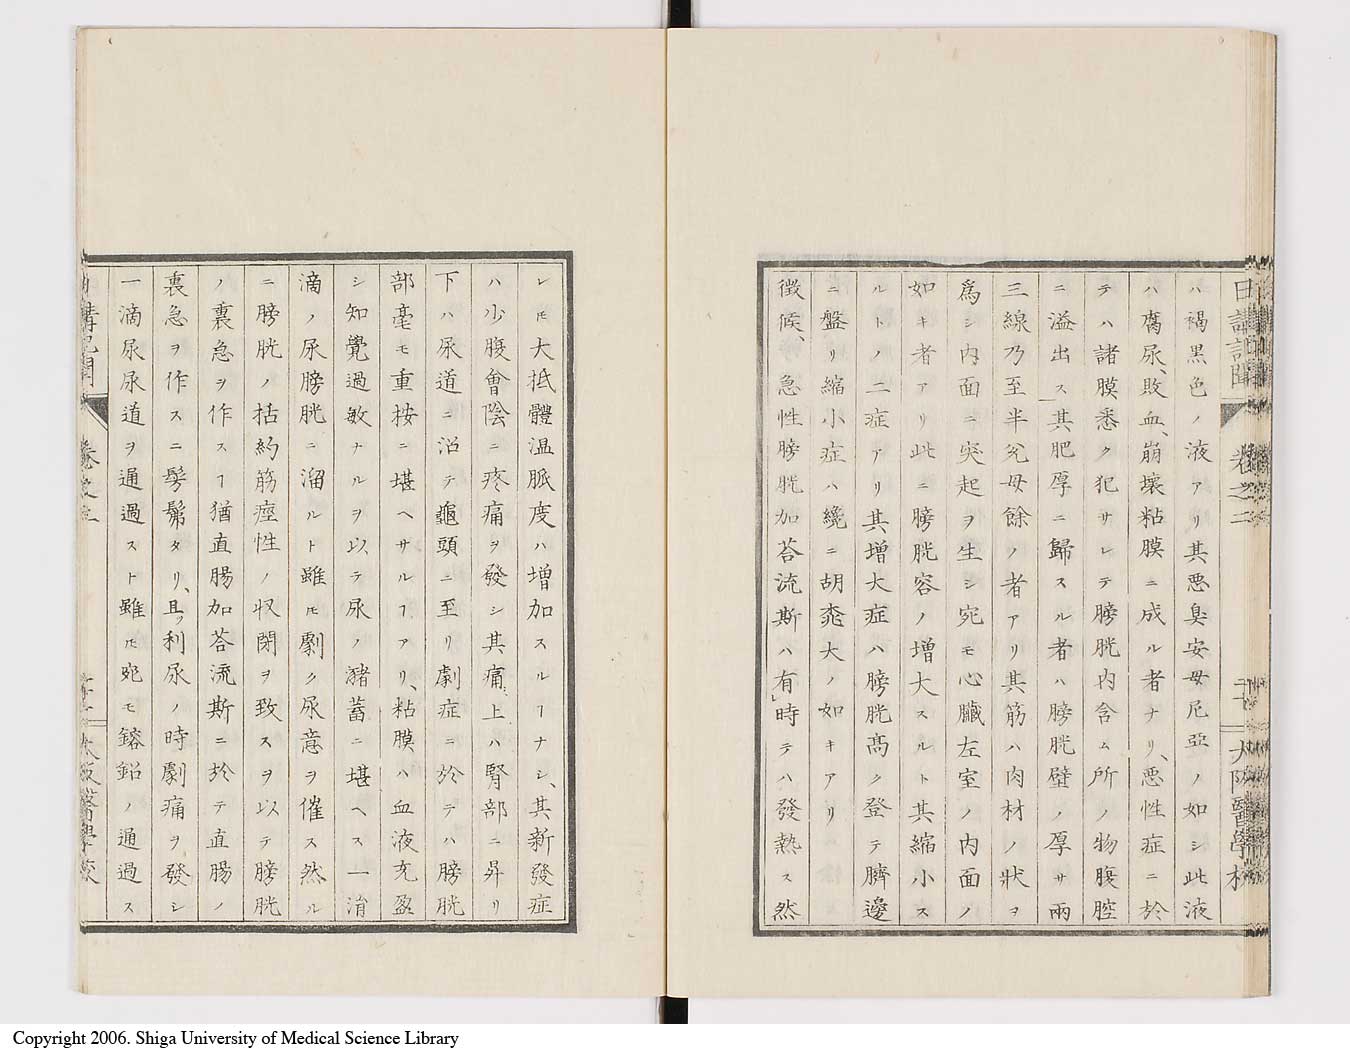 日講記聞 卷之二 大阪醫學校
ハ褐黒色ノ液アリ其悪臭安母尼亞ノ如シ此液
ハ腐尿、敗血、崩壞粘膜ニ成ル者ナリ、悪性症ニ於
テハ諸膜悉ク犯サレテ膀胱内含ム所ノ物腹腔
ニ溢出ス其肥厚ニ歸スル者ハ膀胱壁ノ厚サ兩
三線乃至半兊母餘ノ者アリ其筋ハ肉材ノ状ヲ
為シ内面ニ突起ヲ生シ宛モ心臓左室ノ内面ノ
如キ者アリ此ニ膀胱容ノ增大スルト其縮小ス
ルトノ二症アリ其增大症ハ膀胱髙ク登テ臍邊
ニ盤リ縮小症ハ纔ニ胡桃大ノ如キアリ
徴候、急性膀胱加荅流斯ハ有」時テハ發熱ス然
レ𪜈大抵體温脈度ハ增加スルヿナシ、其新發症
ハ少腹會陰ニ疼痛ヲ發シ其痛上ハ腎部ニ昇リ
下ハ尿道ニ沿テ龜頭ニ至リ劇症ニ於テハ膀胱
部毫モ重按ニ堪ヘサルヿアリ、粘膜ハ血液充盈
シ知覺過敏ナルヲ以テ尿ノ瀦蓄ニ堪ヘス一滴
滴ノ尿膀胱ニ溜ルト雖𪜈劇ク尿意ヲ催ス然ル
ニ膀胱ノ括約筋痙性ノ収閉ヲ致スヲ以テ膀胱
ノ裏急ヲ作スヿ猶直腸加荅流斯ニ於テ直腸ノ
裏急ヲ作スニ髣髴タリ、且ツ利尿ノ時劇痛ヲ發シ
一滴尿尿道ヲ通過スト雖𪜈宛モ鎔鉛ノ通過ス
講記聞 卷之二